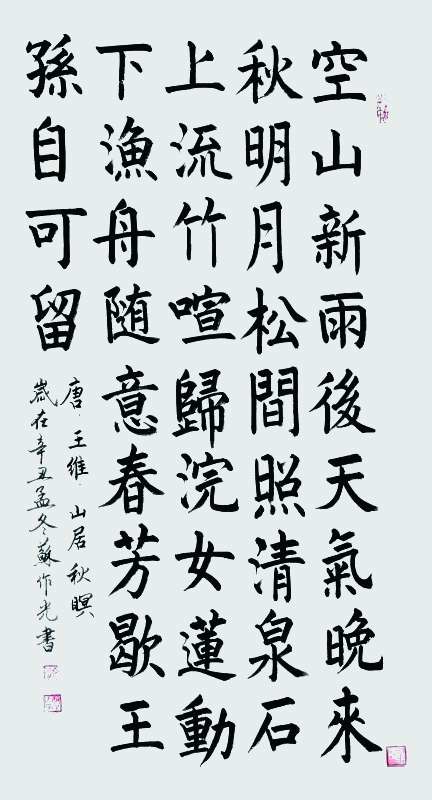 空山新雨後天氣晚來
秋明月松間照清泉石
上流竹喧歸浣女蓮動
下漁舟随意春芳歇王
孫自可留
唐·王維·山居秋暝
歲在辛丑孟冬蘇作光書